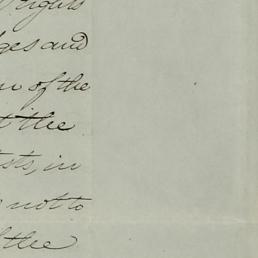 rights
ges and
n of the
t the
sts, in
not to
f the